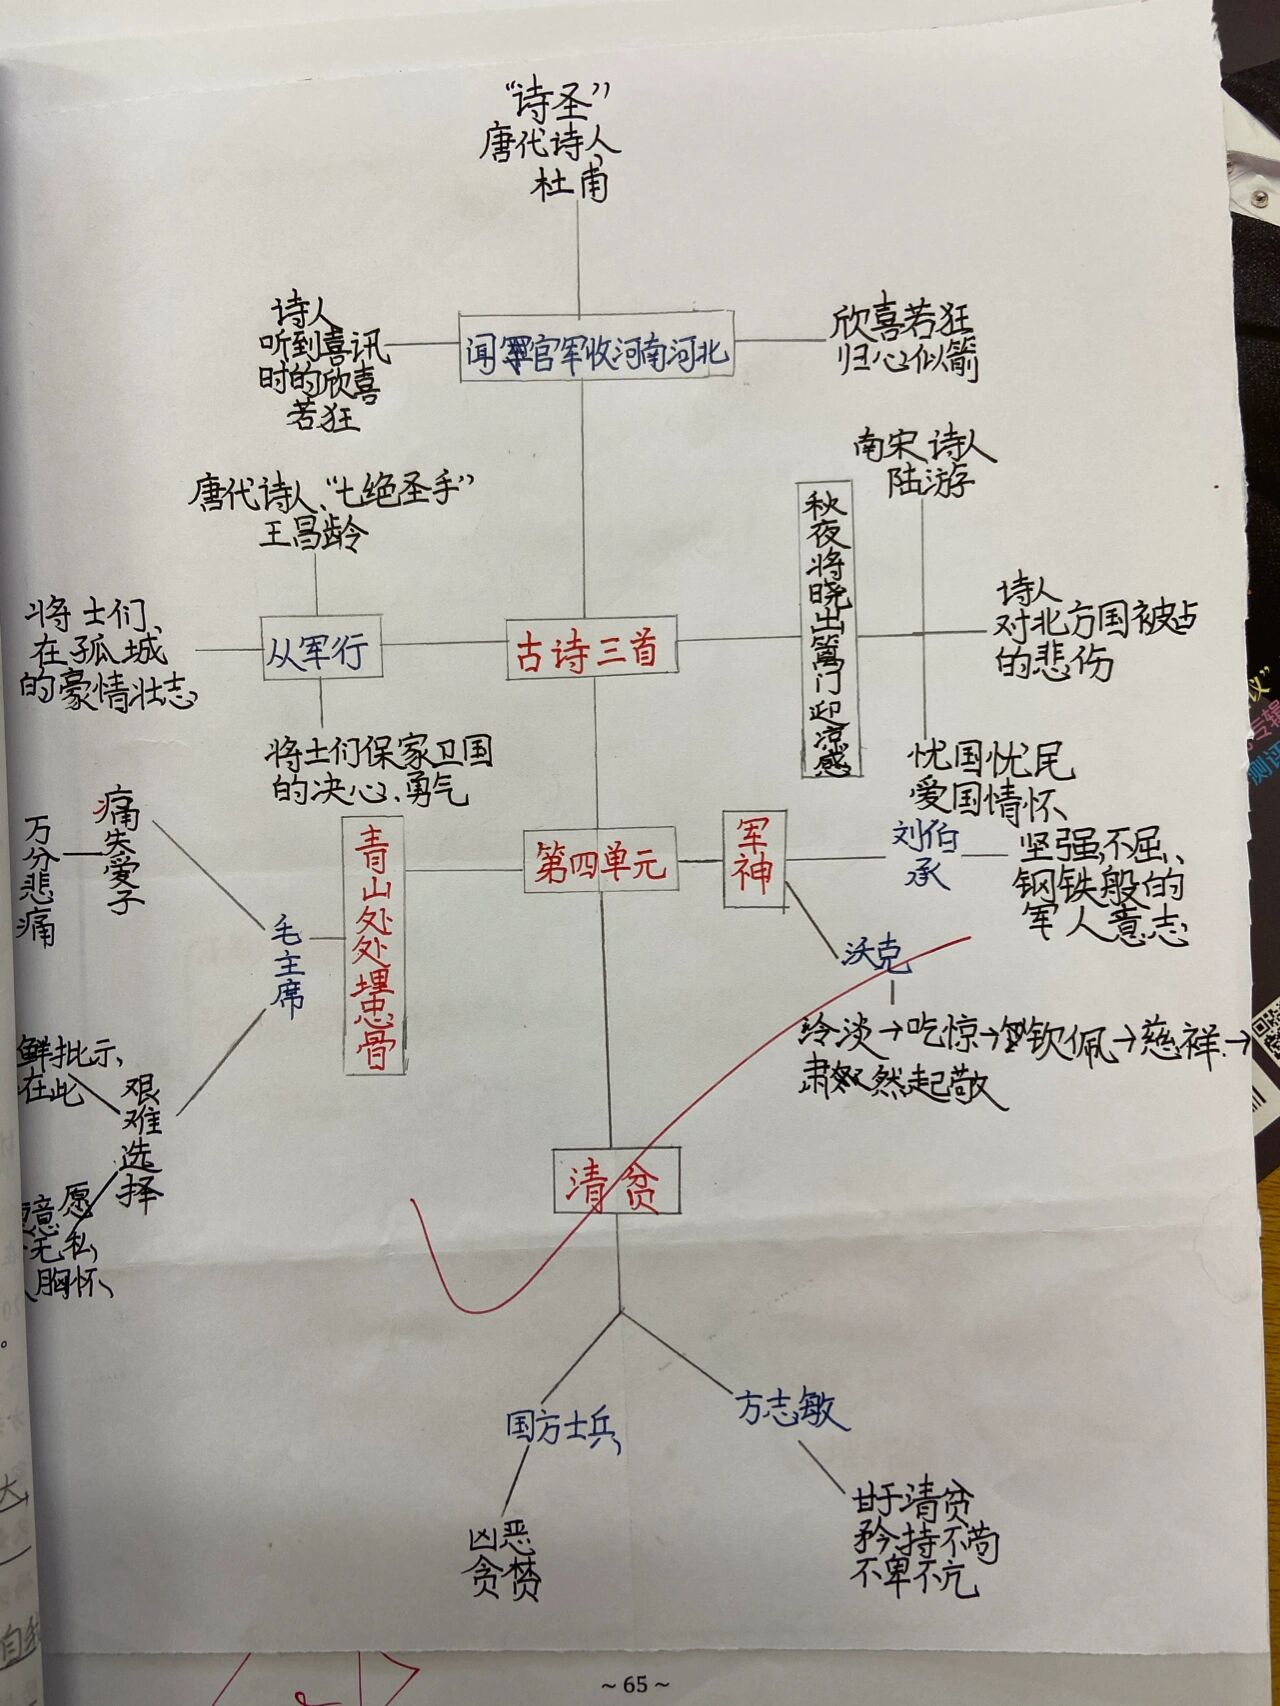 “诗圣”
唐代诗人、
杜甫
诗人
听到喜讯
时的欣喜
若狂
闻官军收河南河北
欣喜若狂
归心似箭
唐代诗人、“七绝圣手”
王昌龄
南宋诗人
陆游
秋夜将晓出篱门迎凉感
将士们、
在孤城
的豪情壮志
从军行
古诗三首
诗人
对北方国被占
的悲伤
将士们保家卫国
的决心、勇气
忧国忧民
爱国情怀
万分悲痛
痛失爱子
青山处处埋忠骨
第四单元
军神
刘伯
承
坚强,不屈、
钢铁般的
军人意志
毛主席
沃克
冷淡→吃惊→钦佩→慈祥→
肃然起敬
鲜批示、
在此
艰难选择
愿
意
无私,
胸怀、
清贫
国方士兵
方志敏
凶恶
贪婪
甘于清贫
矜持不苟
不卑不亢
~ 65 ~